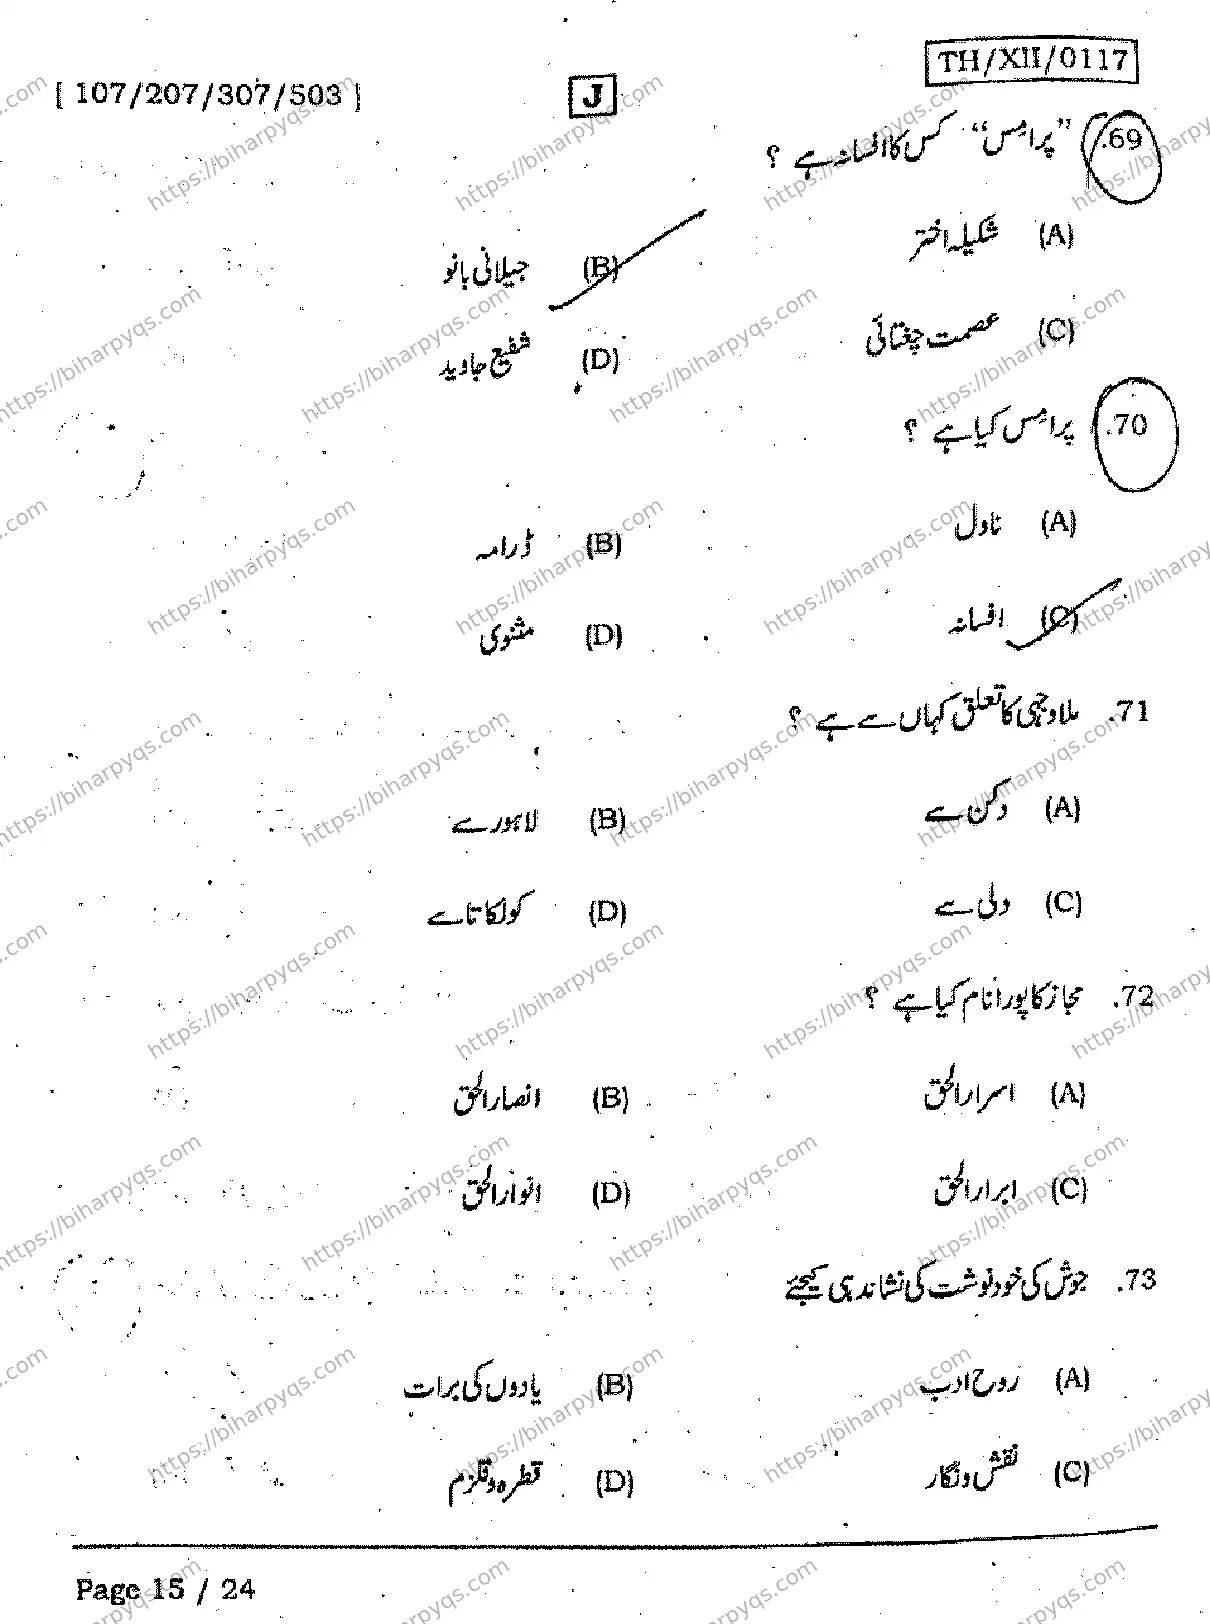 [ 107/207/307/503 ]
J
TH/XII/0117
69. "پرامِس" کس کا افسانہ ہے ؟
(A) شکیلہ اختر
(B) جیلانی بانو
(C) عصمت چغتائی
(D) شفیع جاوید
70. پرامِس کیا ہے ؟
(A) ناول
(B) ڈرامہ
(C) افسانہ
(D) مثنوی
71. ملا وجہی کا تعلق کہاں سے ہے ؟
(A) دکن سے
(B) لاہور سے
(C) دلی سے
(D) کولکاتا سے
72. مجاز کا پورا نام کیا ہے ؟
(A) اسرارالحق
(B) انصارالحق
(C) ابرارالحق
(D) انوارالحق
73. جوش کی خودنوشت کی نشاندہی کیجئے
(A) روح ادب
(B) یادوں کی برات
(C) نقش و نگار
(D) قطرہ و قلزم
Page 15 / 24
https://biharpyqs.com